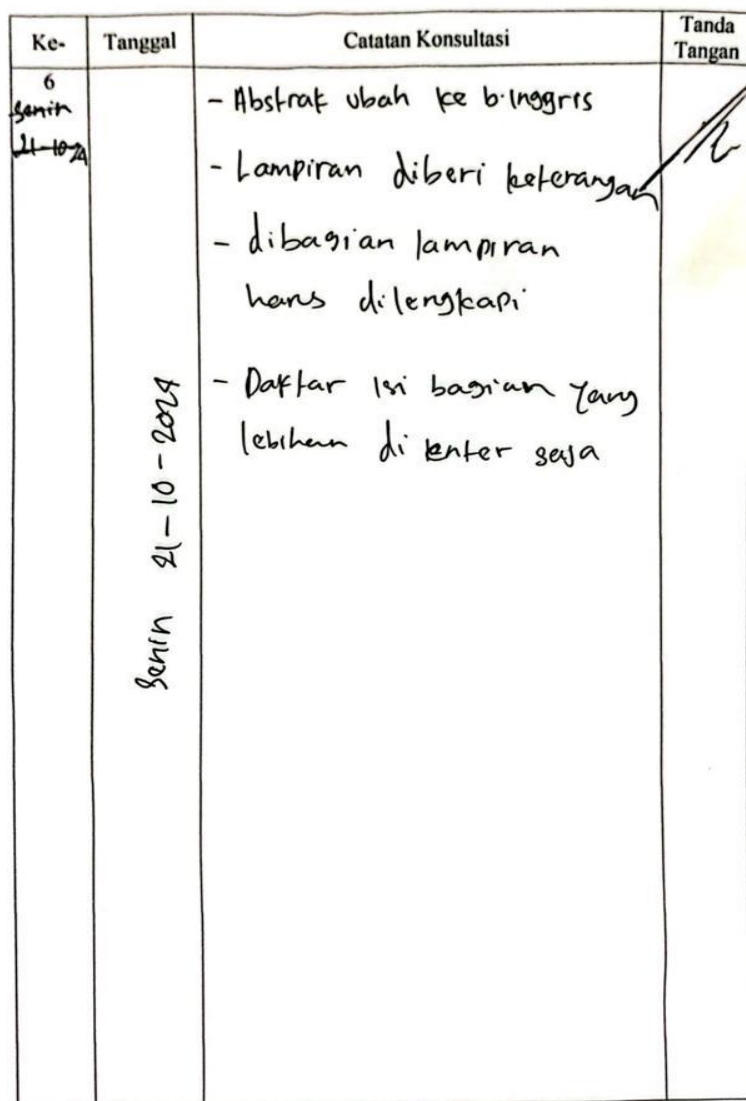 Ke- Tanggal Catatan Konsultasi Tanda Tangan
6
Senin
21-10-24
Senin 21-10-2024
- Abstrak ubah ke b.Inggris
- Lampiran diberi keterangan
- dibagian lampiran
harus dilengkapi
- Daftar Isi bagian yang
lebihan di enter saja